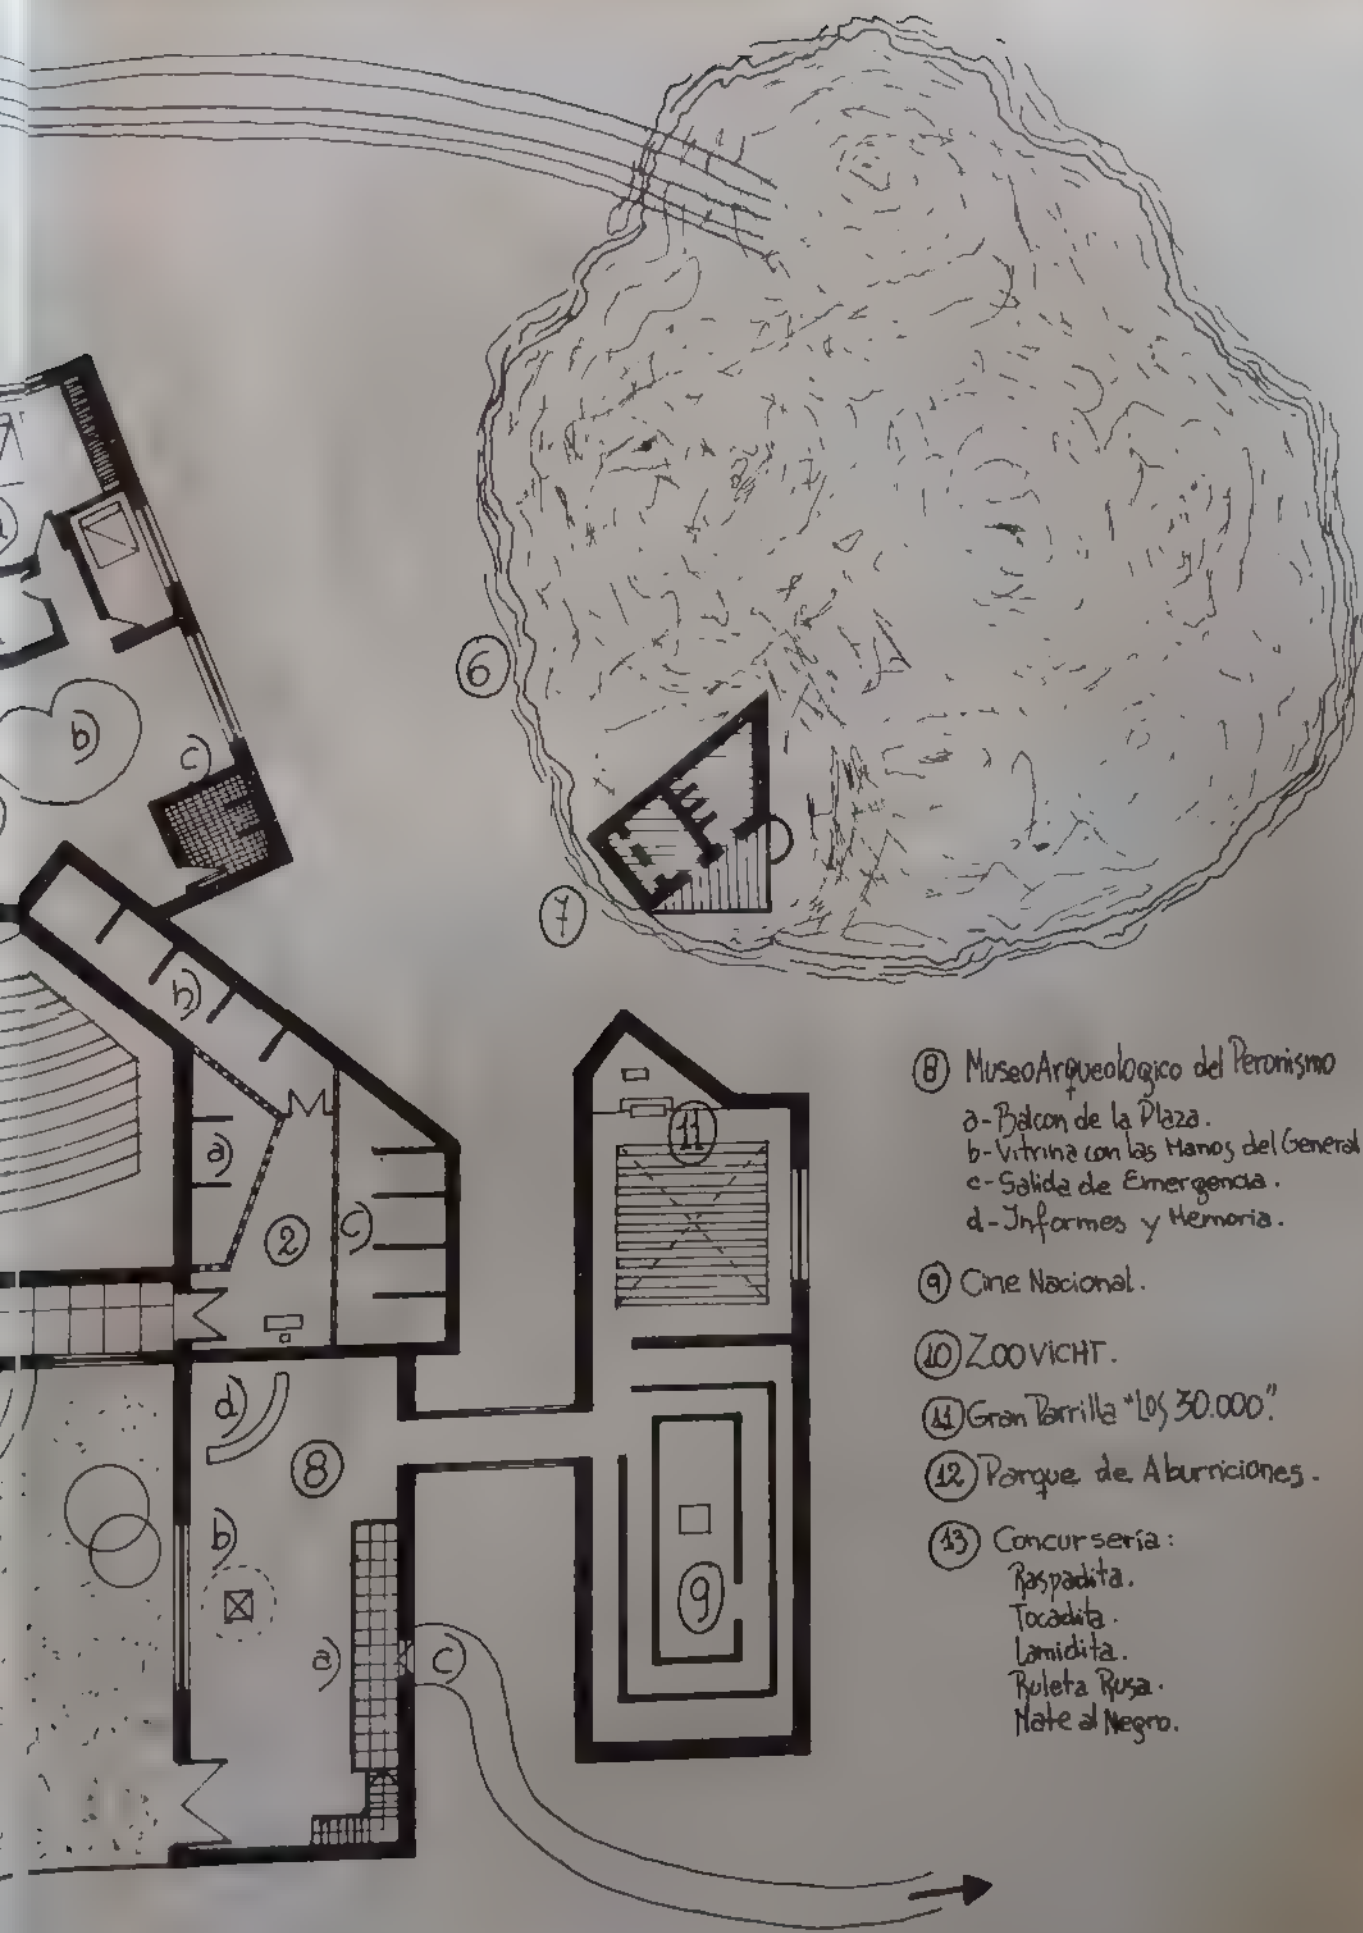 a)
b)
c)
6
7
h)
a)
2
c)
d)
8
b)
a)
c)
11
9
8 Museo Arqueologico del Peronismo
a- Balcon de la Plaza.
b- Vitrina con las Manos del General
c- Salida de Emergencia.
d- Informes y Memoria.
9 Cine Nacional.
10 ZOOVICHT.
11 Gran Parrilla "LOS 30.000".
12 Parque de Aburriciones.
13 Concursería:
Raspadita.
Tocadita.
Lamidita.
Ruleta Rusa.
Mate al Negro.